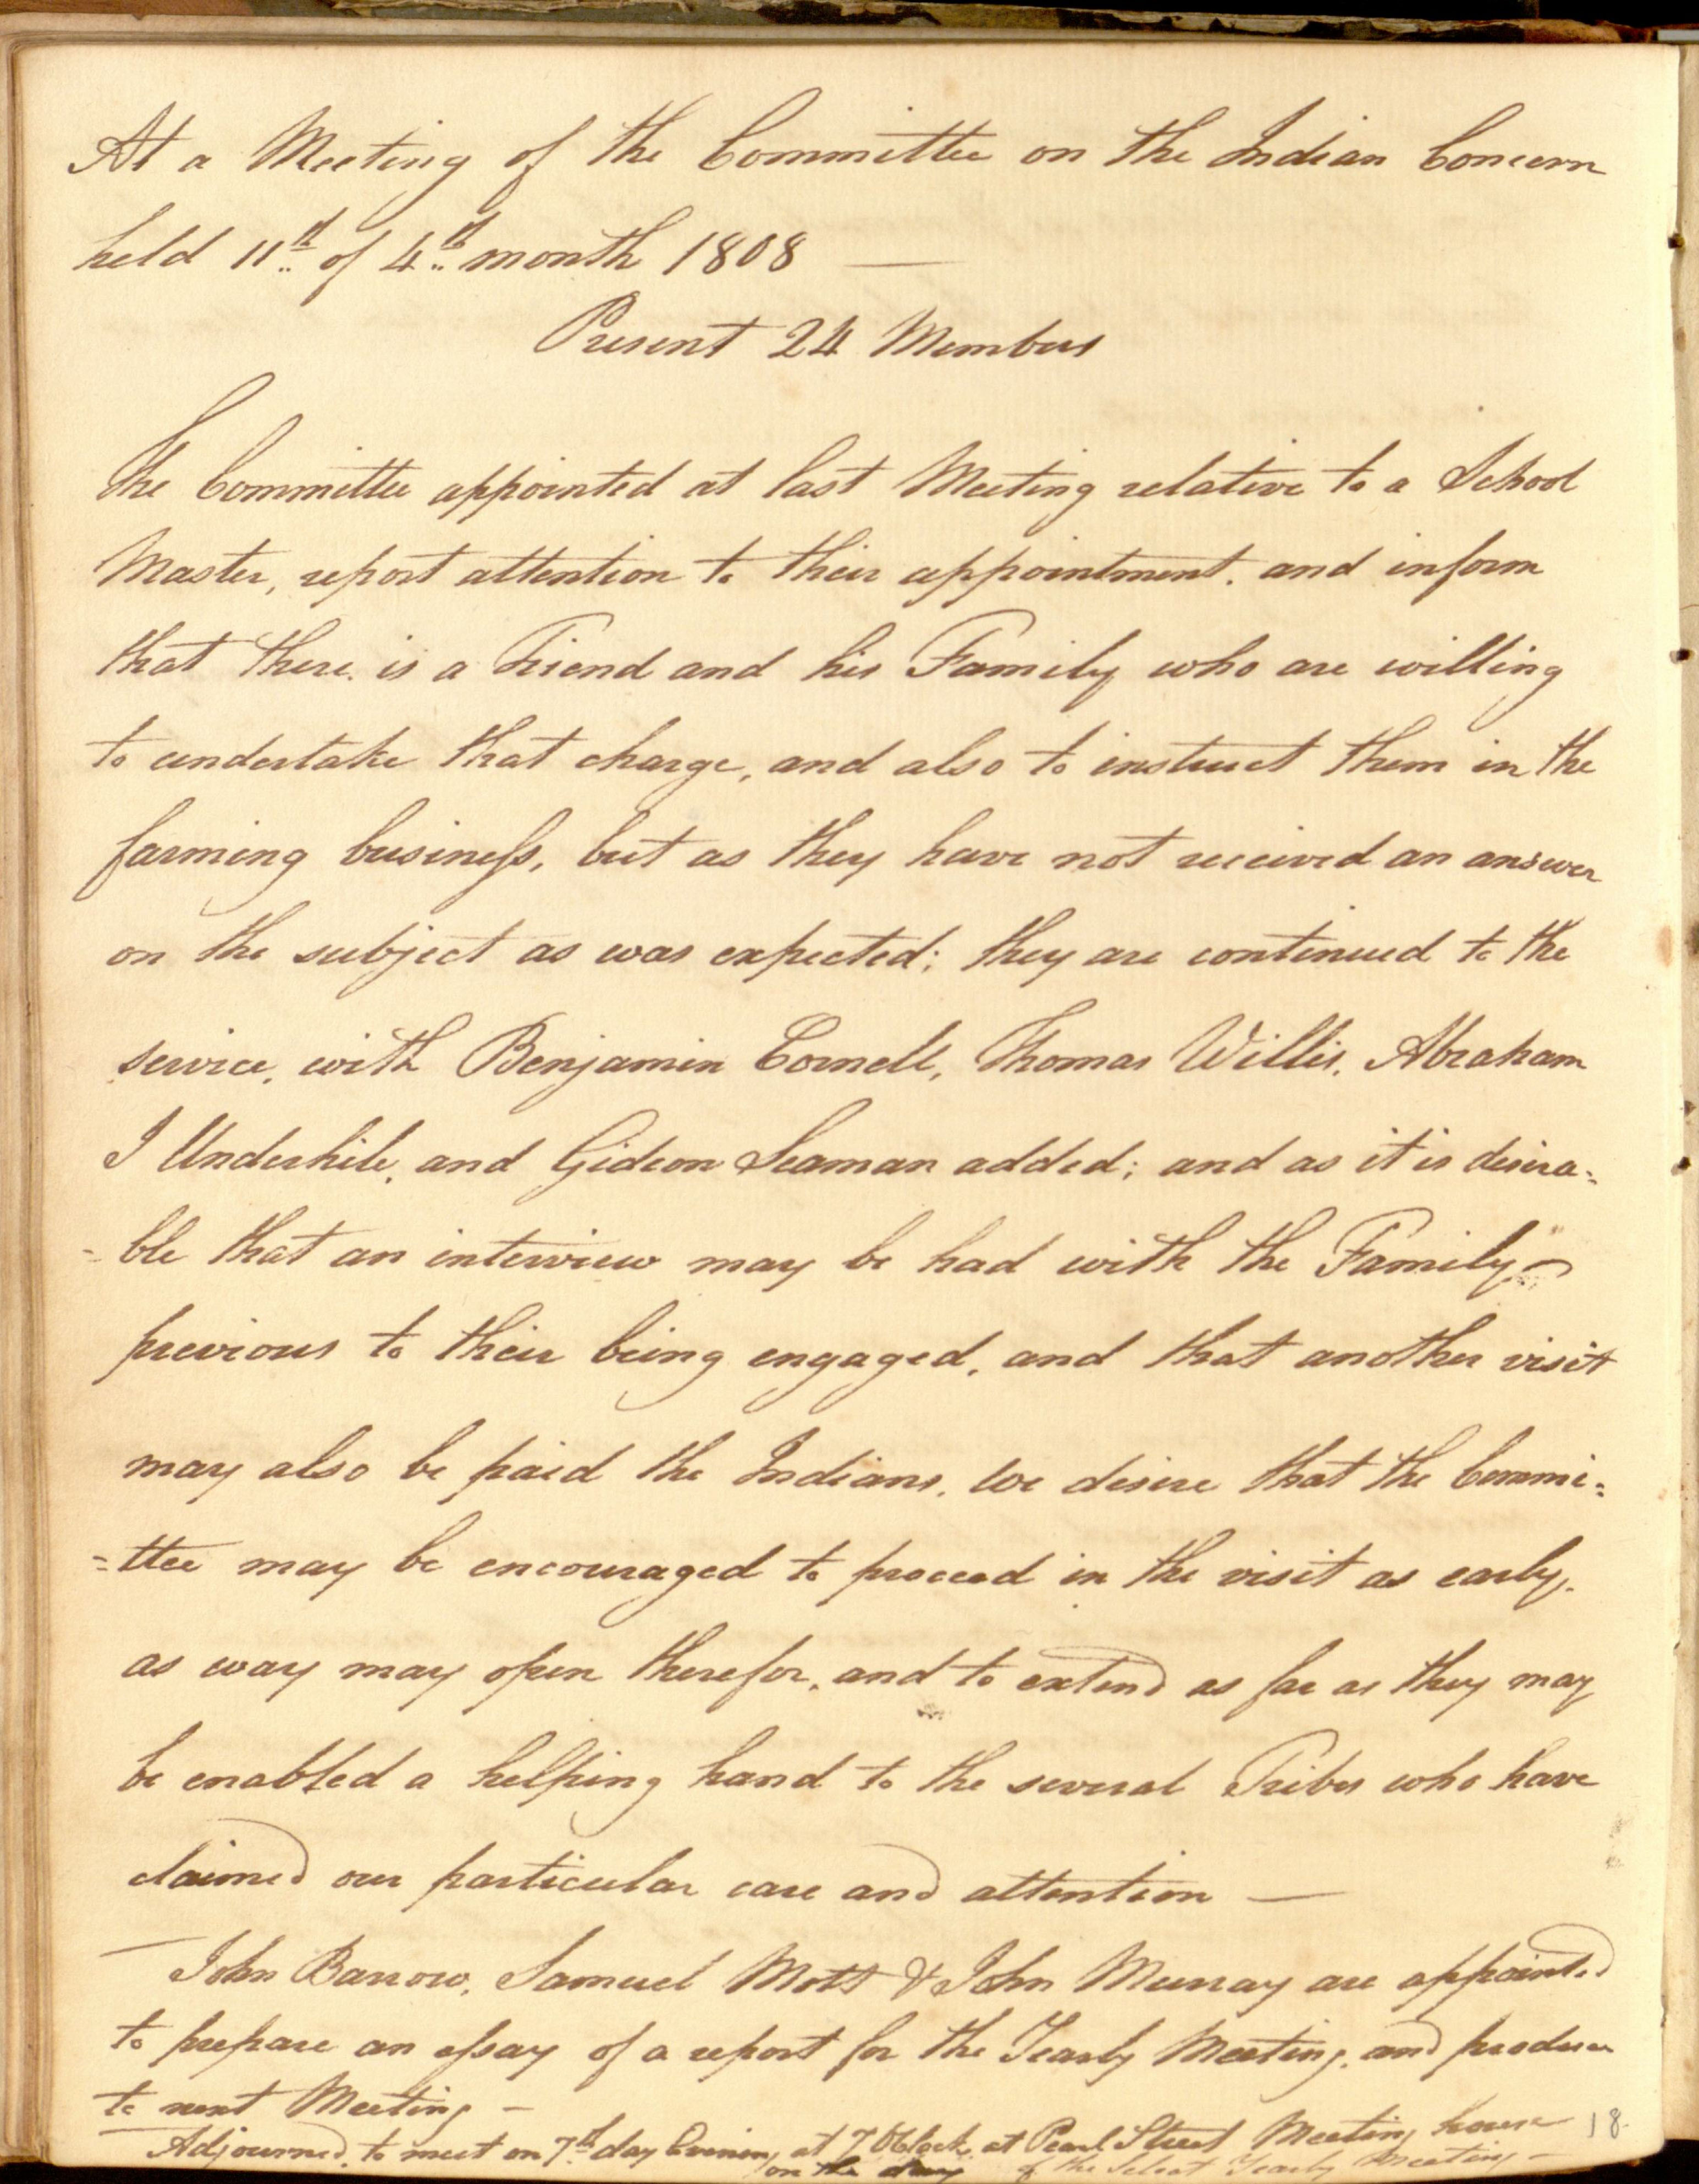 At a Meeting of the Committee on the Indian Concern
held 11th of 4th month 1808 —
Present 24 Members
The Committee appointed at last Meeting relative to a School
Master, report attention to their appointment. and inform
that there is a Friend and his Family who are willing
to undertake that charge, and also to instruct them in the
farming business, but as they have not received an answer
on the subject as was expected; they are continued to the
service, with Benjamin Cornell, Thomas Willis, Abraham
I Underhill, and Gideon Seaman added; and as it is desira=
=ble that an interview may be had with the Family —
previous to their being engaged, and that another visit
may also be paid the Indians, we desire that the Commi=
=ttee may be encouraged to proceed in the visit as early,
as way may open therefor, and to extend as far as they may
be enabled a helping hand to the several Tribes who have
claimed our particular care and attention —
— John Barrow, Samuel Mott & John Murray are appointed
to prepare an essay of a report for the Yearly Meeting, and produce
to next Meeting —
Adjourned, to meet on 7th day Evening at 7 OClock at Pearl Street Meeting house
on the day of the Select Yearly Meeting —
18